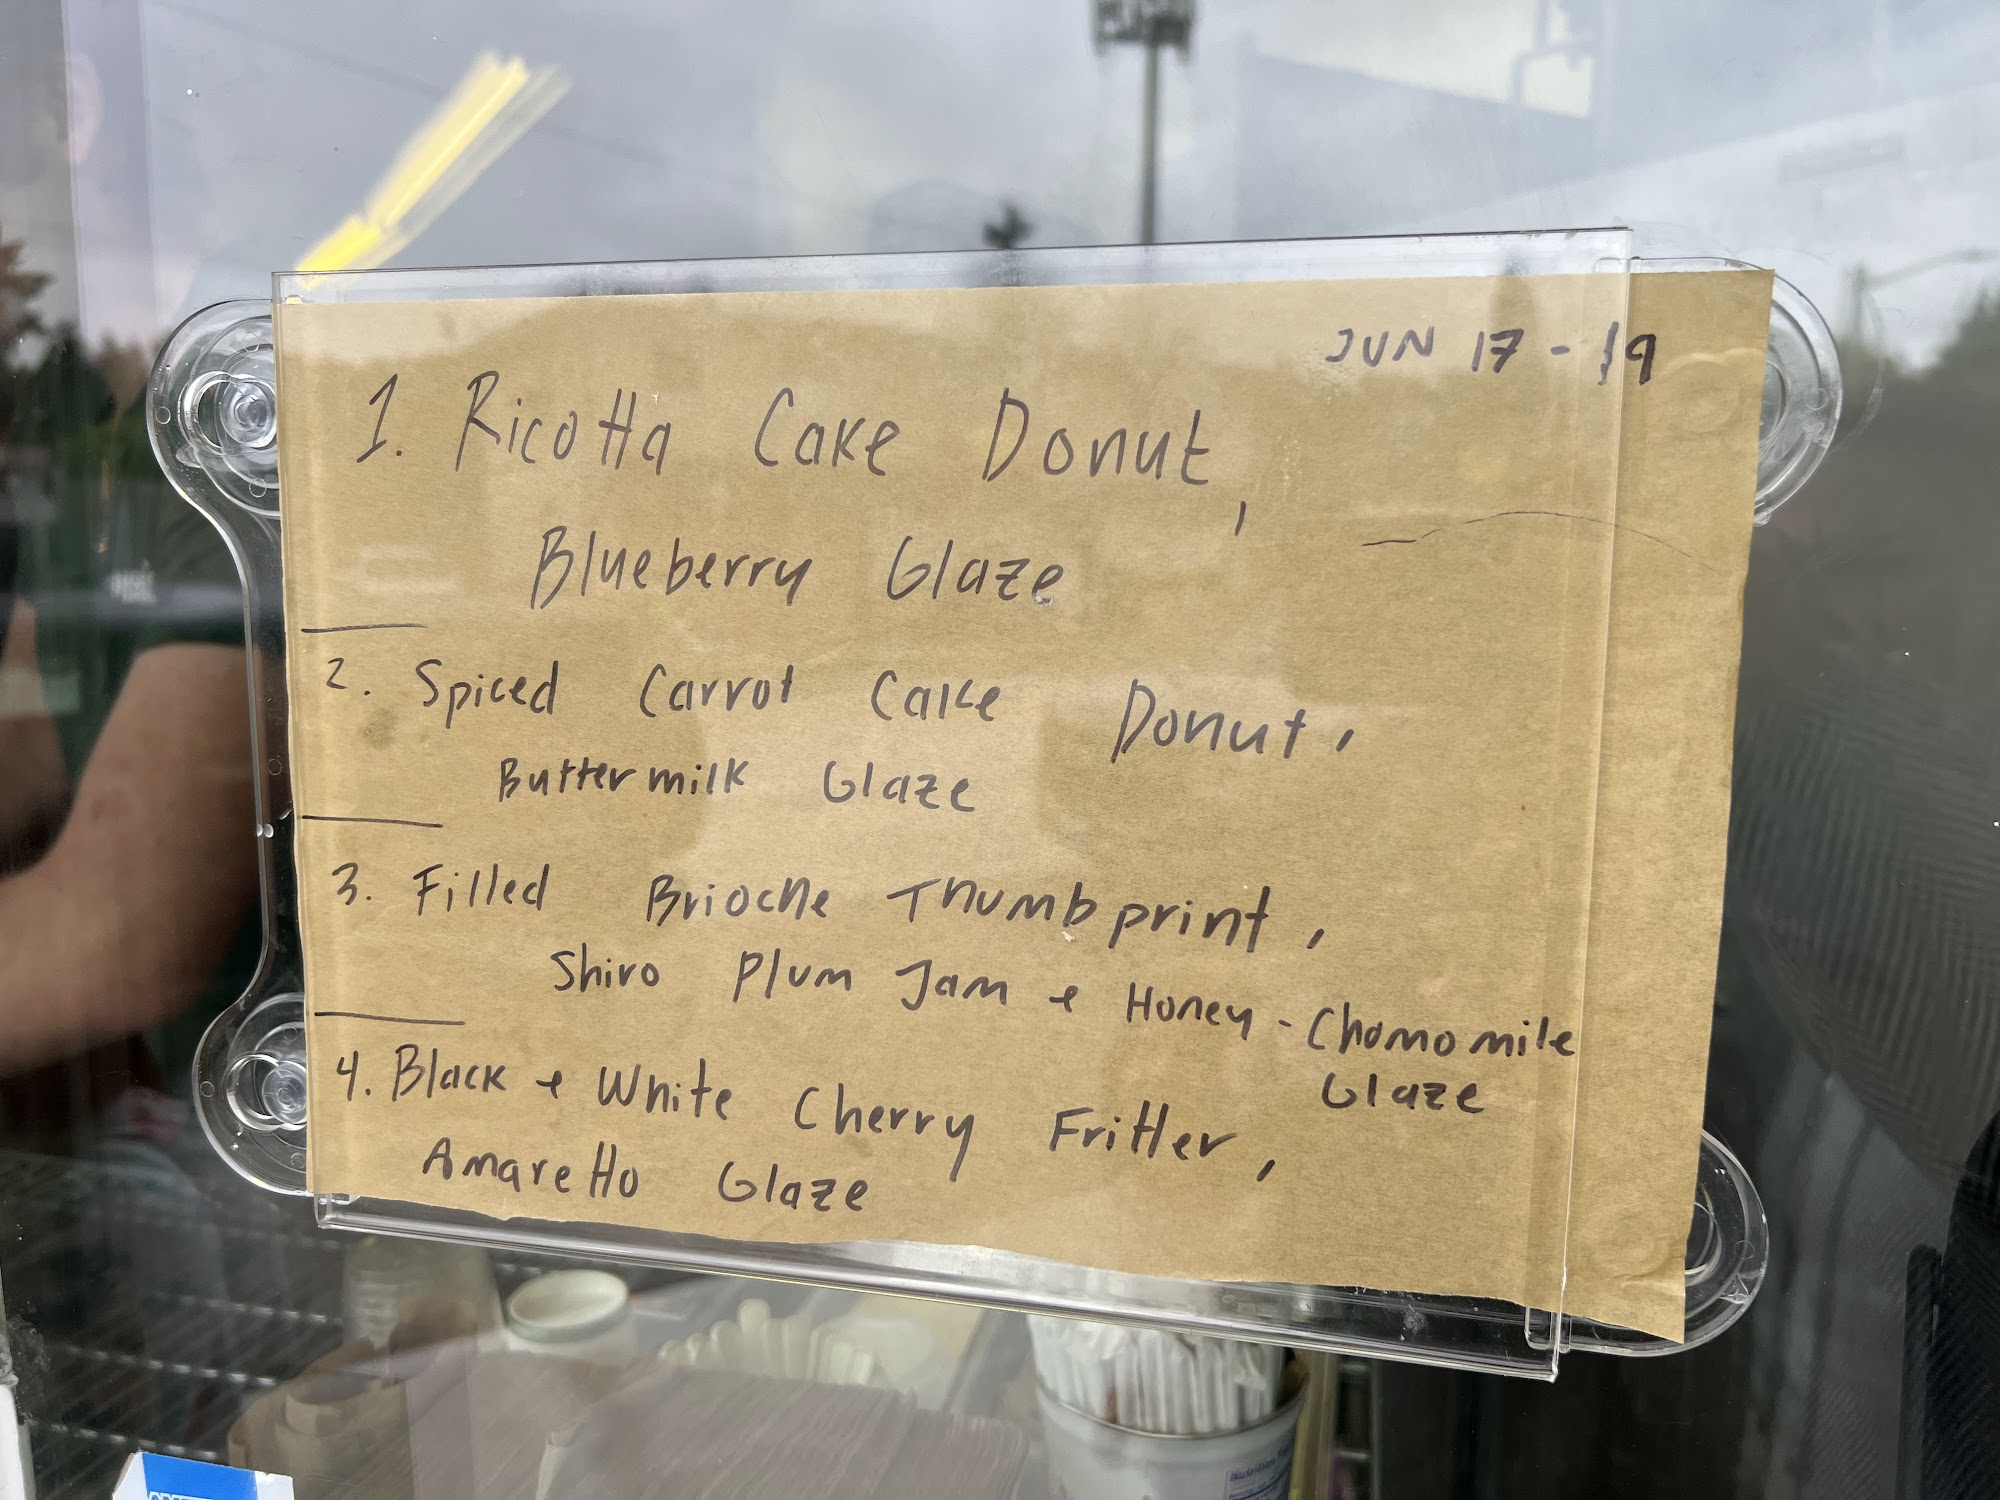 JUN 17 - 19
1. Ricotta Cake Donut,
Blueberry Glaze
2. Spiced Carrot Cake Donut,
Buttermilk Glaze
3. Filled Brioche Thumbprint,
Shiro Plum Jam + Honey - Chomomile
Glaze
4. Black + White Cherry Fritter,
Amaretto Glaze